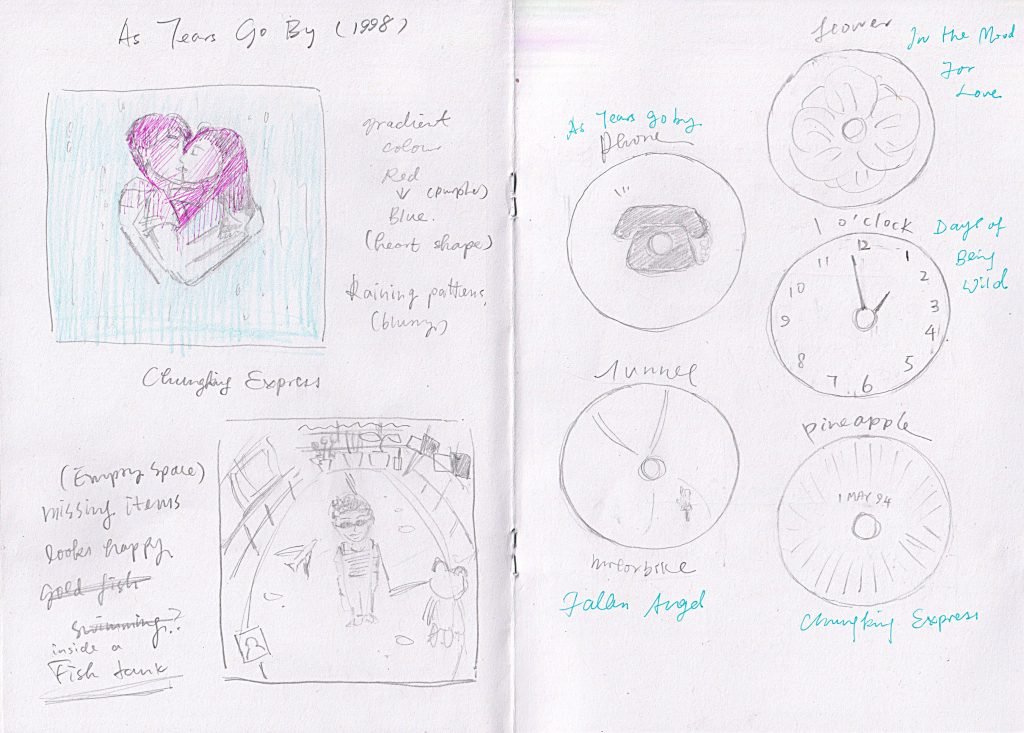 As Tears Go By (1998)
gradient
colour
Red
(purple)
Blue.
(heart shape)
Raining patterns,
(blurry)
Chungking Express
(Empty space)
missing items
looks happy
gold fish
swimming..?
inside a
Fish tank
flower
In the Mood
For
Love
As Tears go by
phone
1 o'clock
Days of
Being
Wild
12
1
2
3
4
5
6
7
8
9
10
11
tunnel
motorbike
Fallen Angel
pineapple
1 MAY 94
Chungking Express